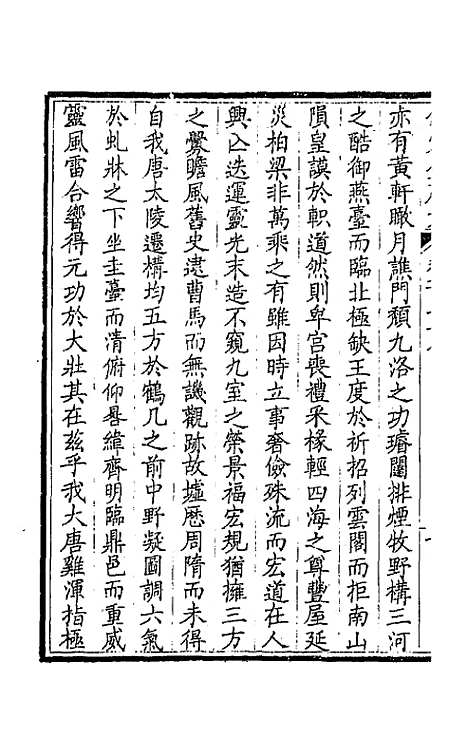 亦有黃軒瞰月譙門頹九洛之功璿闥排煙牧野構三河
之酷御燕臺而臨北極缺王度於祈招列雲閣而拒南山
隕皇謨於軹道然則卑宮喪禮采椽輕四海之尊豐屋延
災柏梁非萬乘之有雖因時立事奢儉殊流而宏道在人
興亾迭運靈光末造不窺九室之榮景福宏規猶擁三方
之釁瞻風舊史逮曹馬而無譏觀跡故墟歷周隋而未得
自我唐太陵遷構均五方於鶴几之前中野凝圖調六氣
於虬牀之下坐圭臺而清俯仰晷緯齊明臨鼎邑而重威
靈風雷合響得元功於大壯其在茲乎我大唐雞渾指極